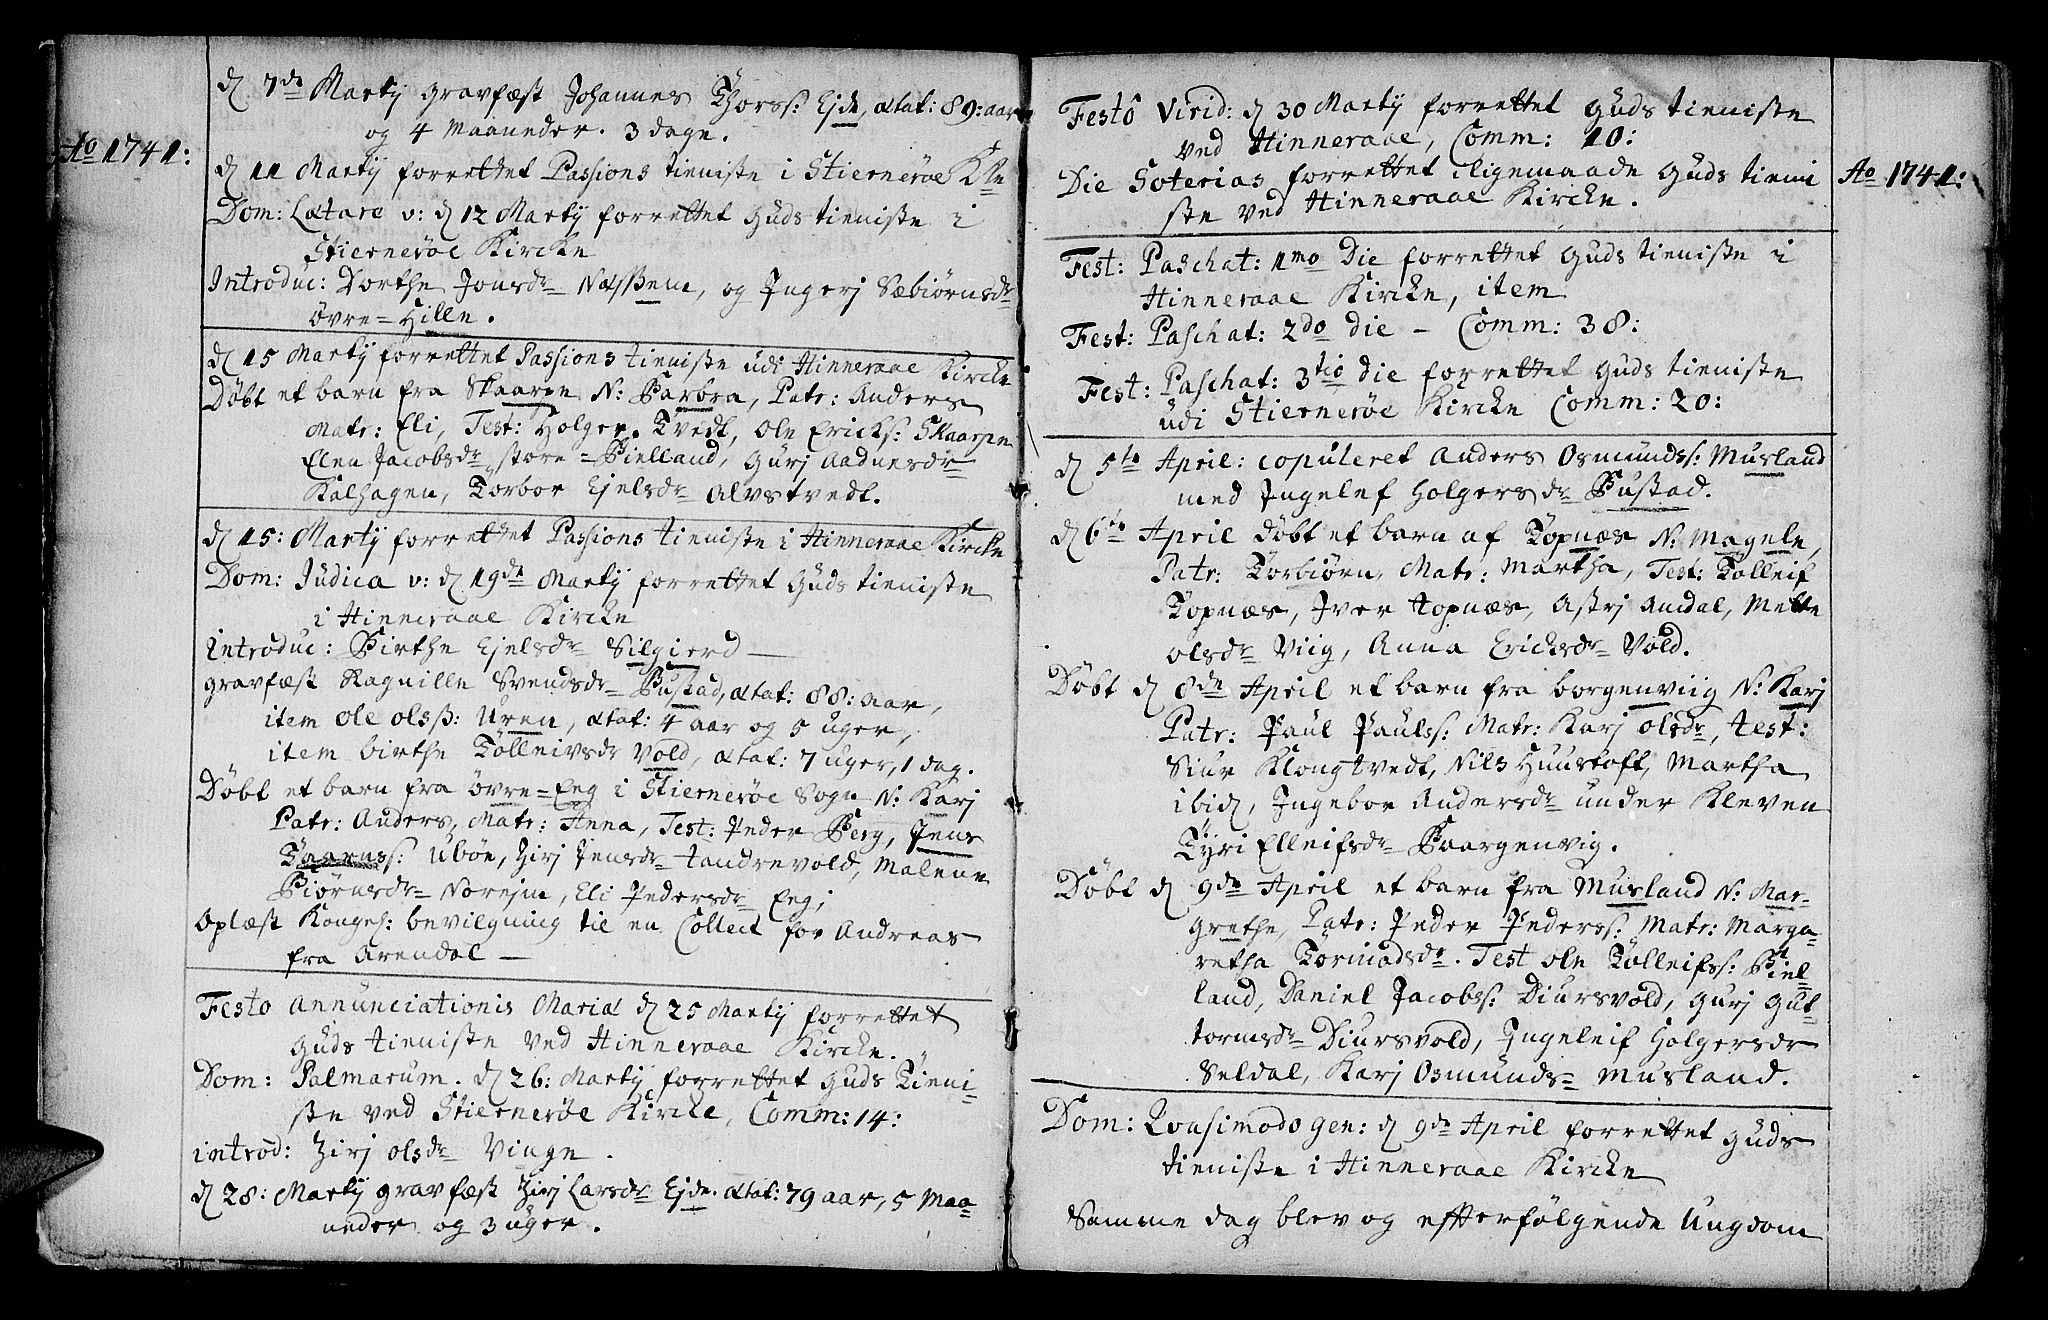 Ao 1741:
d 7de Martij gravfæst Johannes Thorss: Ejde, ætat: 89: aar
og 4 Maaneder. 3 dage.
d 11 Martij forrettet Passions tieniste i Stiernerøe Kke
Dom: Lætare v: d 12 Martij forrettet Guds tieniste i
Stiernerøe Kircke
Introduc: Dorthe Jonsdr Næssem, og Ingerj Sæbiørnsdr
øvre=Hille.
d 15 Martij forrettet Passions tieniste udi Hinneraae Kircke
Døbt et barn fra Skaarpe N: Barbra, Patr: Anders
Matr: Eli, Test: Holger Tvedt, Ole Ericks: Skaarpe
Elen Jacobsdr store=Bielland, Gurj Aadnesdr
Kalhagen, Torbor Ejelsdr Alvstvedt.
d 15: Martij forrettet Passions tieniste i Hinneraae Kircke
Dom: Judica v: d 19de Martij forrettet Guds tieniste
i Hinneraae Kircke
Introduc: Birthe Ejelsdr Silgierd —
gravfæst Ragnille Svendsdr Bustad, ætat: 88: aar,
item Ole Olss: Uren, ætat: 4 aar og 5 uger,
item birthe Tolleivsdr Vold, ætat: 7 uger, 1 dag.
Døbt et barn fra øvre=Eeg i Stiernerøe Sogn N: Karj
Patr: Anders, Matr: Anna, Test: Peder Berg, Jens
Taarnss: Ubøe, Zirj Jensdr tandrevold, Malene
Biørnsdr Norejm, Eli Pedersdr Eeg;
Oplæst Konges: bevilgning til en Collect for Andreas
fra Arendal —
Festo Annunciationis Mariæ d 25 Martij forrettet
Guds tieniste ved Hinneraae Kircke.
Dom: Palmarum. d 26: Martij forrettet Guds Tieni-
ste ved Stiernerøe Kircke, Comm: 14:
introd: Zirj olsdr Vinge.
d 28: Martij gravfæst Zirj Larsdr Ejde. ætat: 79 aar, 5 Maa=
neder og 3 uger.
Festô Virid: d 30 Martij forrettet Guds tieniste
ved Hinneraae, Comm: 10:
Die Soterias forrettet ligemaade Guds tieni
ste ved Hinneraae Kircke.
Ao 1741:
Fest: Paschat: 1mo Die forrettet Guds tieniste i
Hinneraae Kircke, item
Fest: Paschat: 2do die — Comm: 38:
Fest: Paschat: 3tio die forrettet Guds tieniste
udi Stiernerøe Kircke Comm: 20:
d 5te April: copuleret Anders Osmunds: Musland
med Ingelef Holgersdr Bustad.
d 6te April Døbt et barn af Topnæs N: Magele,
Patr: Torbiørn, Matr: Martha, Test: Tolleif
Topnæs, Iver topnæs, Astrj Amdal, Mette
olsdr Viig, Anna Ericksdr Vold.
Døbt d 8de April et barn fra borgenviig N: Karj
Patr: Paul Pauls: Matr: Karj olsdr, test:
Siur Klongtvedt, Nils Huustoft, Martha
ibid, Ingebor Andersdr under Kleven
Tyri Elleifsdr Baargenvig.
Døbt d 9de April et barn fra Musland N: Mar-
grethe, Patr: Peder Pederss: Matr: Marga-
retha Tormodsdr. Test ole Tolleifss: Biel
land, Daniel Jacobss: Diursvold, Gurj Gut-
tormsdr Diursvold, Ingeleif Holgersdr
Seldal, Karj Osmunds= Musland.
Dom: Qvasimodo gen: d 9de April forrettet Guds
tieniste i Hinneraae Kircke
Samme dag blev og efterfølgende Ungdom